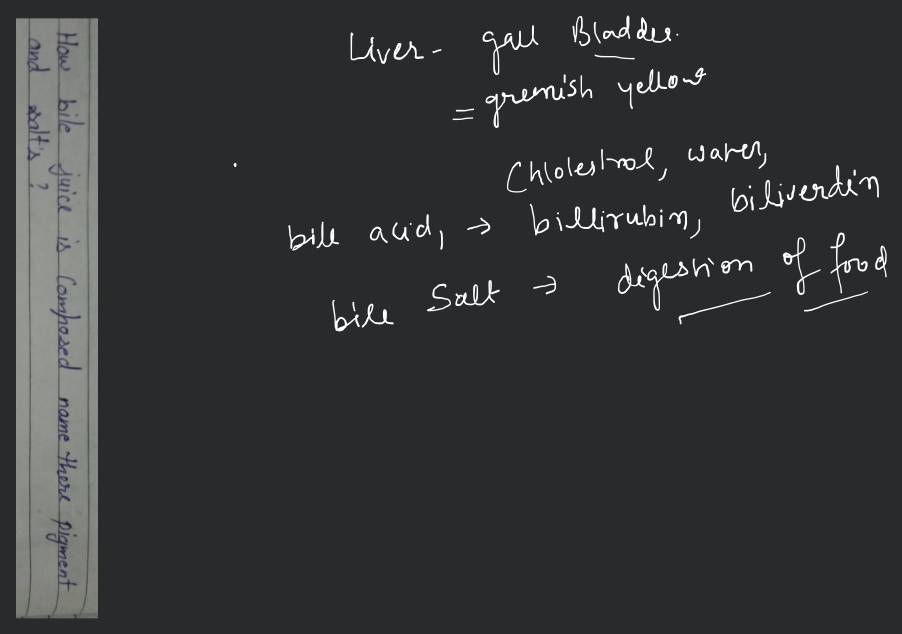 How bile juice is Composed name there pigment
and salt's ?
Liver - gall Bladder.
= greenish yellow
Chlolestrol, water,
bile acid, → billirubin, biliverdin
bile Salt → digestion of food